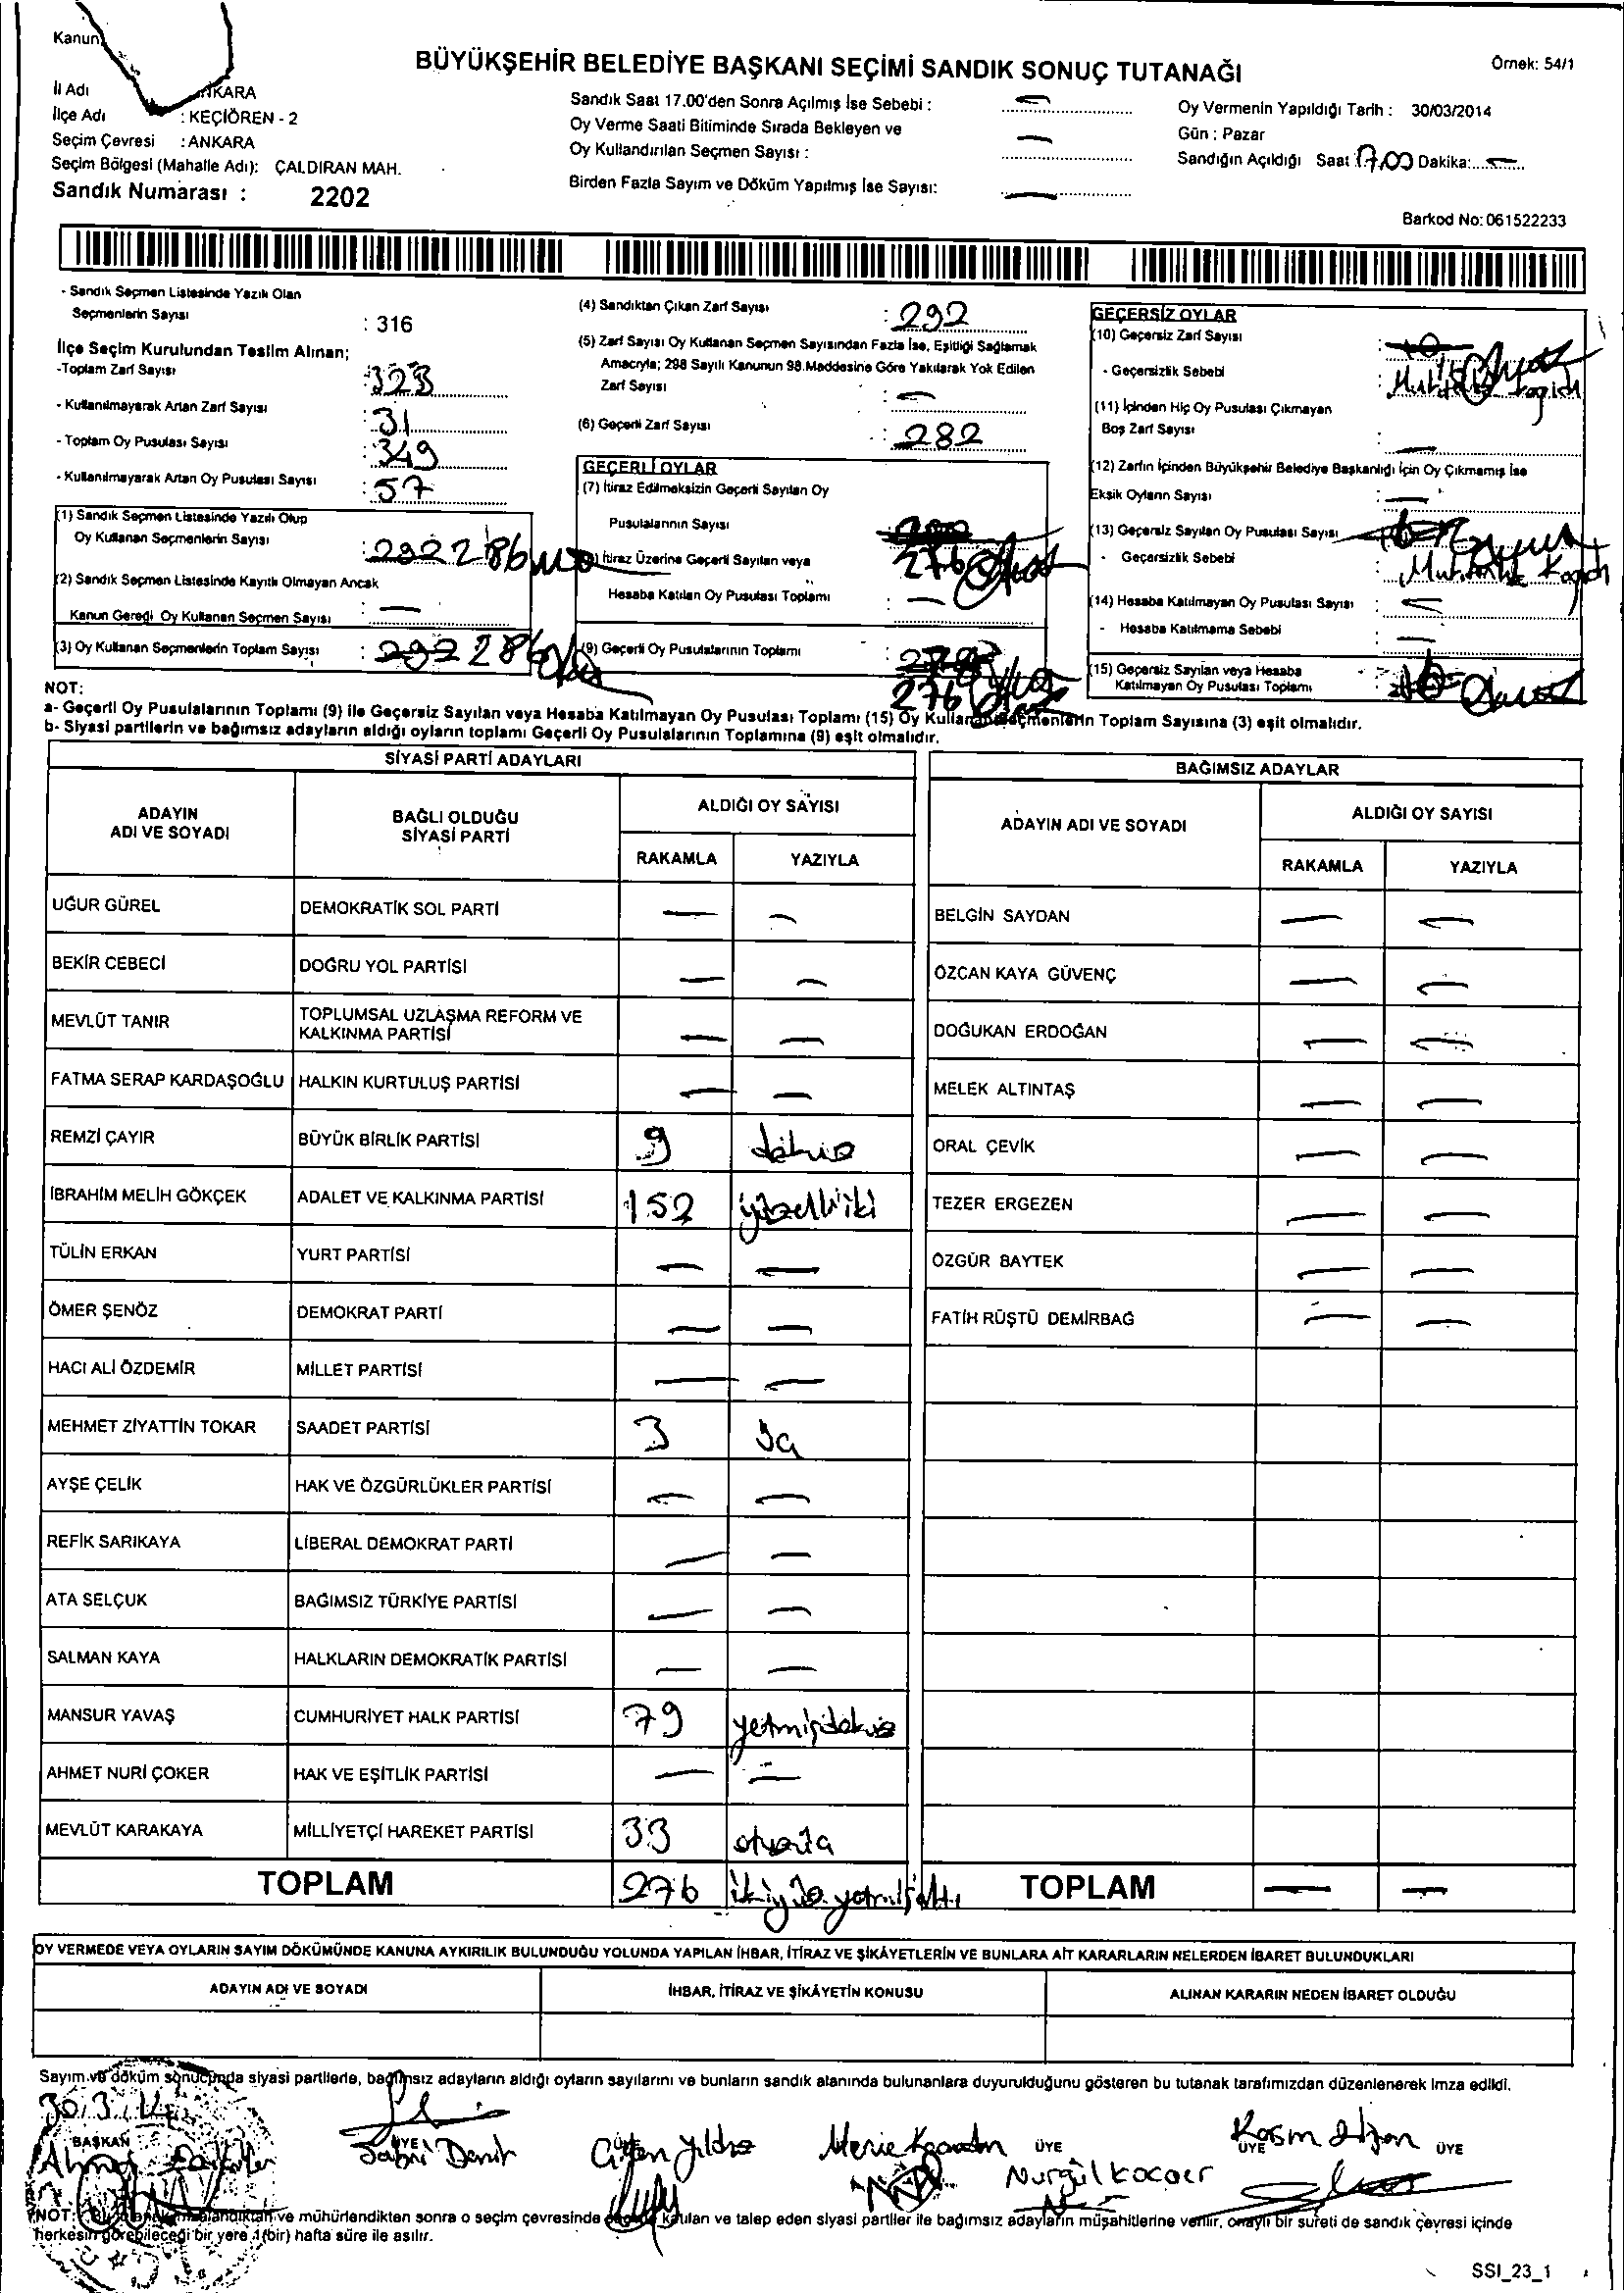 Kanun
BÜYÜKŞEHİR BELEDİYE BAŞKANI SEÇİMİ SANDIK SONUÇ TUTANAĞI
Örnek: 54/1
İli Adı ANKARA
İlçe Adı : KEÇİÖREN - 2
Seçim Çevresi : ANKARA
Seçim Bölgesi (Mahalle Adı): ÇALDIRAN MAH.
Sandık Numarası : 2202
Sandık Saat 17.00'den Sonra Açılmış İse Sebebi :
Oy Verme Saati Bitiminde Sırada Bekleyen ve
Oy Kullandırılan Seçmen Sayısı :
Birden Fazla Sayım ve Döküm Yapılmış İse Sayısı:
Oy Vermenin Yapıldığı Tarih : 30/03/2014
Gün : Pazar
Sandığın Açıldığı Saat 17.00 Dakika:
Barkod No: 061522233
- Sandık Seçmen Listesinde Yazılı Olan
Seçmenlerin Sayısı : 316
İlçe Seçim Kurulundan Teslim Alınan;
-Toplam Zarf Sayısı : 323
- Kullanılmayarak Artan Zarf Sayısı : 31
- Toplam Oy Pusulası Sayısı : 349
- Kullanılmayarak Artan Oy Pusulası Sayısı : 57
(1) Sandık Seçmen Listesinde Yazılı Olup
Oy Kullanan Seçmenlerin Sayısı : 292 286
(2) Sandık Seçmen Listesinde Kayıtlı Olmayan Ancak
Kanun Gereği Oy Kullanan Seçmen Sayısı :
(3) Oy Kullanan Seçmenlerin Toplam Sayısı : 292 286
(4) Sandıktan Çıkan Zarf Sayısı : 292
(5) Zarf Sayısı Oy Kullanan Seçmen Sayısından Fazla İse, Eşitliği Sağlamak
Amacıyla; 298 Sayılı Kanunun 98.Maddesine Göre Yakılarak Yok Edilen
Zarf Sayısı :
(6) Geçerli Zarf Sayısı : 282
GEÇERLİ OYLAR
(7) İtiraz Edilmeksizin Geçerli Sayılan Oy
Pusulalarının Sayısı
276
İtiraz Üzerine Geçerli Sayılan veya
Hesaba Katılan Oy Pusulası Toplamı :
(9) Geçerli Oy Pusulalarının Toplamı :
276
GEÇERSİZ OYLAR
(10) Geçersiz Zarf Sayısı : 10
- Geçersizlik Sebebi :
(11) İçinden Hiç Oy Pusulası Çıkmayan
Boş Zarf Sayısı :
(12) Zarfın İçinden Büyükşehir Belediye Başkanlığı İçin Oy Çıkmamış İse
Eksik Oyların Sayısı :
(13) Geçersiz Sayılan Oy Pusulası Sayısı
- Geçersizlik Sebebi :
(14) Hesaba Katılmayan Oy Pusulası Sayısı :
- Hesaba Katılmama Sebebi :
(15) Geçersiz Sayılan veya Hesaba
Katılmayan Oy Pusulası Toplamı :
NOT:
a- Geçerli Oy Pusulalarının Toplamı (9) ile Geçersiz Sayılan veya Hesaba Katılmayan Oy Pusulası Toplamı (15) Oy Kullanan Seçmenlerin Toplam Sayısına (3) eşit olmalıdır.
b- Siyasi partilerin ve bağımsız adayların aldığı oyların toplamı Geçerli Oy Pusulalarının Toplamına (9) eşit olmalıdır.
SİYASİ PARTİ ADAYLARI
ADAYIN ADI VE SOYADI BAĞLI OLDUĞU SİYASİ PARTİ ALDIĞI OY SAYISI
RAKAMLA YAZIYLA
UĞUR GÜREL DEMOKRATİK SOL PARTİ — —
BEKİR CEBECİ DOĞRU YOL PARTİSİ — —
MEVLÜT TANIR TOPLUMSAL UZLAŞMA REFORM VE KALKINMA PARTİSİ — —
FATMA SERAP KARDAŞOĞLU HALKIN KURTULUŞ PARTİSİ — —
REMZİ ÇAYIR BÜYÜK BİRLİK PARTİSİ 9 dokuz
İBRAHİM MELİH GÖKÇEK ADALET VE KALKINMA PARTİSİ 152 yüzelliiki
TÜLİN ERKAN YURT PARTİSİ — —
ÖMER ŞENÖZ DEMOKRAT PARTİ — —
HACI ALİ ÖZDEMİR MİLLET PARTİSİ — —
MEHMET ZİYATTİN TOKAR SAADET PARTİSİ 3 üç
AYŞE ÇELİK HAK VE ÖZGÜRLÜKLER PARTİSİ — —
REFİK SARIKAYA LİBERAL DEMOKRAT PARTİ — —
ATA SELÇUK BAĞIMSIZ TÜRKİYE PARTİSİ — —
SALMAN KAYA HALKLARIN DEMOKRATİK PARTİSİ — —
MANSUR YAVAŞ CUMHURİYET HALK PARTİSİ 79 yetmişdokuz
AHMET NURİ ÇOKER HAK VE EŞİTLİK PARTİSİ — —
MEVLÜT KARAKAYA MİLLİYETÇİ HAREKET PARTİSİ 33 otuzüç
TOPLAM 276 ikiyüz yetmişaltı
BAĞIMSIZ ADAYLAR
ADAYIN ADI VE SOYADI ALDIĞI OY SAYISI
RAKAMLA YAZIYLA
BELGİN SAYDAN — —
ÖZCAN KAYA GÜVENÇ — —
DOĞUKAN ERDOĞAN — —
MELEK ALTINTAŞ — —
ORAL ÇEVİK — —
TEZER ERGEZEN — —
ÖZGÜR BAYTEK — —
FATİH RÜŞTÜ DEMİRBAĞ — —
TOPLAM — —
OY VERMEDE VEYA OYLARIN SAYIM DÖKÜMÜNDE KANUNA AYKIRILIK BULUNDUĞU YOLUNDA YAPILAN İHBAR, İTİRAZ VE ŞİKÂYETLERİN VE BUNLARA AİT KARARLARIN NELERDEN İBARET BULUNDUKLARI
ADAYIN ADI VE SOYADI İHBAR, İTİRAZ VE ŞİKÂYETİN KONUSU ALINAN KARARIN NEDEN İBARET OLDUĞU
Sayım ve döküm sonucunda siyasi partilerle, bağımsız adayların aldığı oyların sayılarını ve bunların sandık alanında bulunanlara duyurulduğunu gösteren bu tutanak tarafımızdan düzenlenerek imza edildi.
30.3.14
BAŞKAN ÜYE ÜYE ÜYE ÜYE
Sabri Demir
Yıldız
Nurgül Kocaer
NOT: ve mühürlendikten sonra o seçim çevresinde katılan ve talep eden siyasi partiler ile bağımsız adayların müşahitlerine verilir, onaylı bir sureti de sandık çevresi içinde
herkesin görebileceği bir yere 1(bir) hafta süre ile asılır.
SSI_23_1